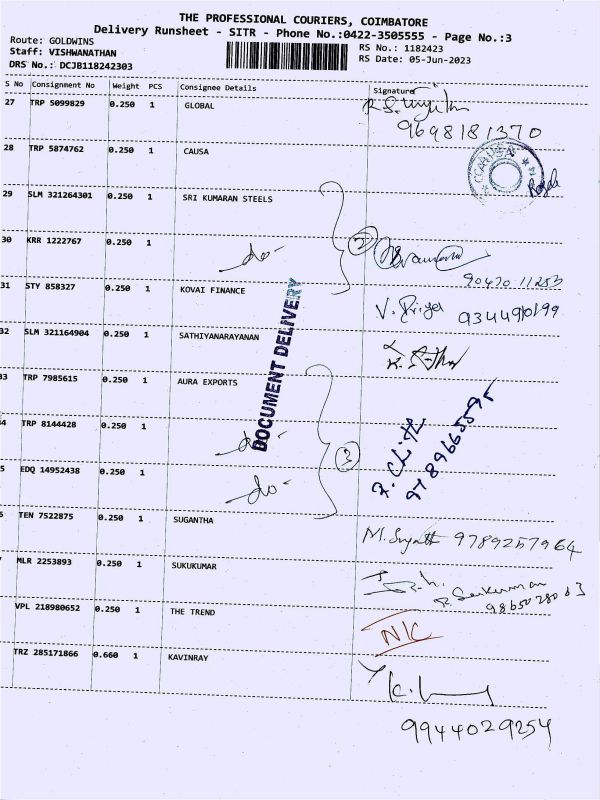 THE PROFESSIONAL COURIERS, COIMBATORE
Delivery Runsheet - SITR - Phone No.:0422-3505555 - Page No.:3
Route: GOLDWINS
Staff: VISHWANATHAN
DRS No.: DCJB118242303
RS No.: 1182423
RS Date: 05-Jun-2023
S No Consignment No Weight PCS Consignee Details Signature
27 TRP 5099829 0.250 1 GLOBAL
9698181370
28 TRP 5874762 0.250 1 CAUSA
29 SLM 321264301 0.250 1 SRI KUMARAN STEELS
30 KRR 1222767 0.250 1 -do- 2
31 STY 858327 0.250 1 KOVAI FINANCE V. Priya
32 SLM 321164904 0.250 1 SATHIYANARAYANAN
DOCUMENT DELIVERY
33 TRP 7985615 0.250 1 AURA EXPORTS
4 TRP 8144428 0.250 1 -do- 3
9789665595
5 EDQ 14952438 0.250 1 -do-
6 TEN 7522875 0.250 1 SUGANTHA 9789257964
7 MLR 2253893 0.250 1 SUKUKUMAR
VPL 218980652 0.250 1 THE TREND N/C
TRZ 285171866 0.660 1 KAVINRAY
9944029254